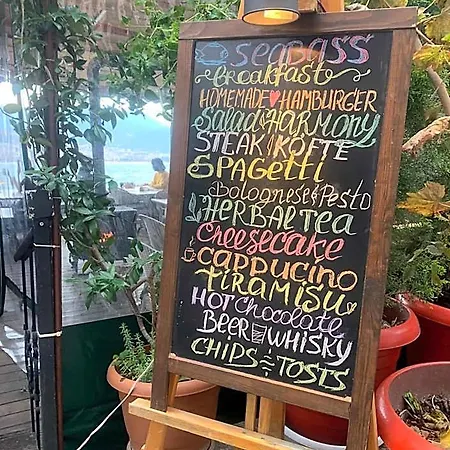 SEABASS
breakfast
HOMEMADE HAMBURGER
Salad & HARMONY
STEAK & KÖFTE
SPAGETTİ
Bolognese & Pesto
HERBAL TEA
CHEESECAKE
CAPPUCINO
TIRAMISU
HOT CHocolate
BEER WHISKY
CHIPS & TOSTS